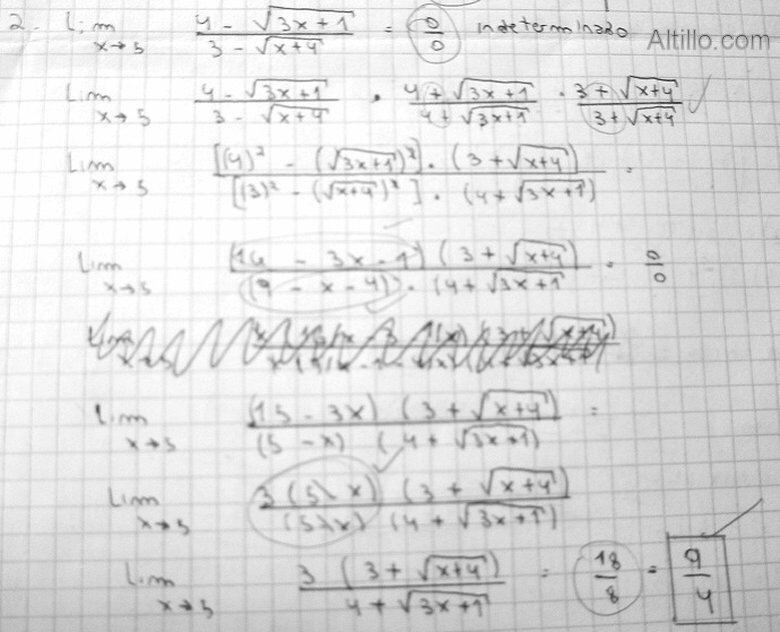 2. Lim x→5 (4 - √(3x+1)) / (3 - √(x+4)) = 0/0 indeterminado Altillo.com
Lim x→5 (4 - √(3x+1)) / (3 - √(x+4)) · (4 + √(3x+1)) / (4 + √(3x+1)) · (3 + √(x+4)) / (3 + √(x+4))
Lim x→5 ([(4)² - (√(3x+1))²] · (3 + √(x+4))) / ([(3)² - (√(x+4))²] · (4 + √(3x+1))) =
Lim x→5 ((16 - 3x - 1) (3 + √(x+4))) / ((9 - x - 4) · (4 + √(3x+1))) = 0/0
Lim x→5 ((15 - 3x) (3 + √(x+4))) / ((5 - x) (4 + √(3x+1))) =
Lim x→5 (3 (5 - x) (3 + √(x+4))) / ((5 - x) (4 + √(3x+1)))
Lim x→5 (3 (3 + √(x+4))) / (4 + √(3x+1)) = 18/8 = 9/4